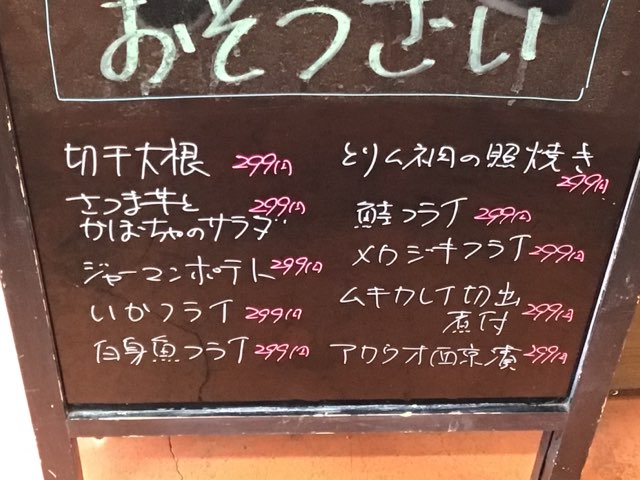 おそうざい
切干大根 299円
さつま芋と 299円
かぼちゃのサラダ
ジャーマンポテト 299円
いかフライ 299円
白身魚フライ 299円
とりムネ肉の照焼き
299円
鮭フライ 299円
メカジキフライ 299円
ムキカレイ切出
煮付 299円
アカウオ西京漬 299円